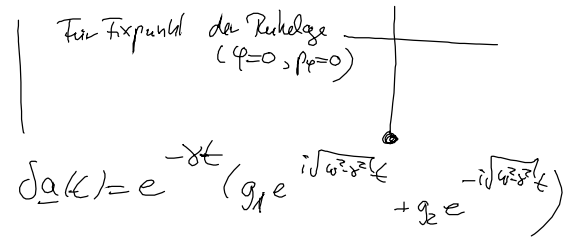 Für Fixpunkt der Ruhelage
(φ=0, pφ=0)
δa(t) = e^{-γt} (g₁ e^{i√(ω²-γ²) t} + g₂ e^{-i√(ω²-γ²) t})